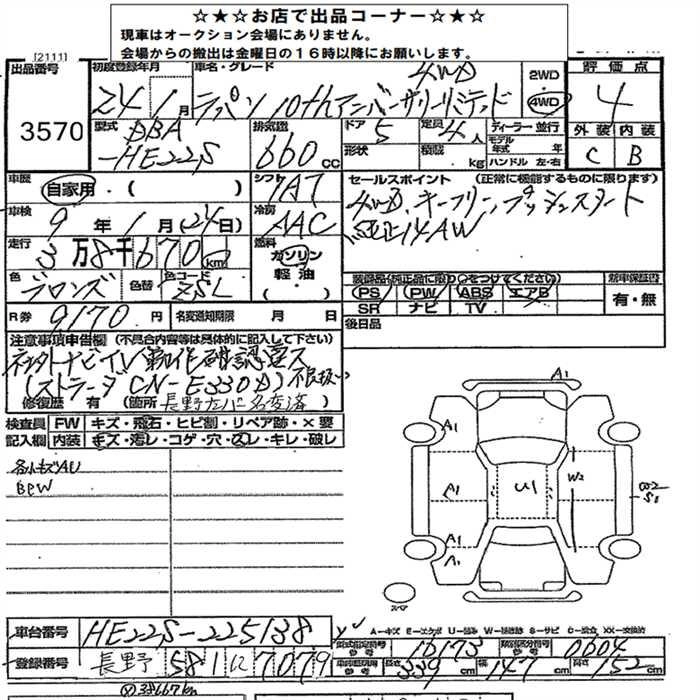 ☆★☆お店で出品コーナー☆★☆
現車はオークション会場にありません。
会場からの搬出は金曜日の16時以降にお願いします。
[2111]
出品番号 初度登録年月 車名・グレード 4WD 2WD 評価点
3570 24 1月 ラパン 10thアニバーサリーリミテッド 4WD 4
型式 DBA 排気量 ドア 5 定員 4人 ディーラー 並行 外装 内装
-HE22S 660cc 形状 積載 kg モデル年式 年 C B
ハンドル 左・右
車歴 自家用・( ) シフト IAT セールスポイント (正常に機能するものに限ります)
車検 9年1月(24日) 冷房 AAC 4WD、キーフリー、プッシュスタート
走行 3万8千670km 燃料 ガソリン 純正14AW
軽油・
( )
色 ブロンズ 色替 色コード ZSL 装備品(純正品に限り○をつけてください) 新車保証書
PS PW ABS エアB 有・無
SR ナビ TV
R券 9170円 名変期限 月 日 後日品
注意事項申告欄 (不具合内容等は具体的に記入して下さい)
ネンタトナビTV動作確認違ス
(ストラーダ CN-E330D)
修復歴 有 (箇所 長野ナンバー名変済
検査員 FW キズ・飛石・ヒビ割・リペア跡・×要
記入欄 内装 キズ・汚レ・コゲ・穴・スレ・キレ・破レ
各小キズAU
BPW
A1
A1
U1
W2
A1
A1
A1
A-キズ E-エクボ U-凹み S-サビ C-腐食 XX-交換済
車台番号 HE22S-225138 型式指定番号 16173 類別区分番号 0604
登録番号 長野 581 に 7079 長さ 339cm 幅 147cm 高さ 152cm
38667km